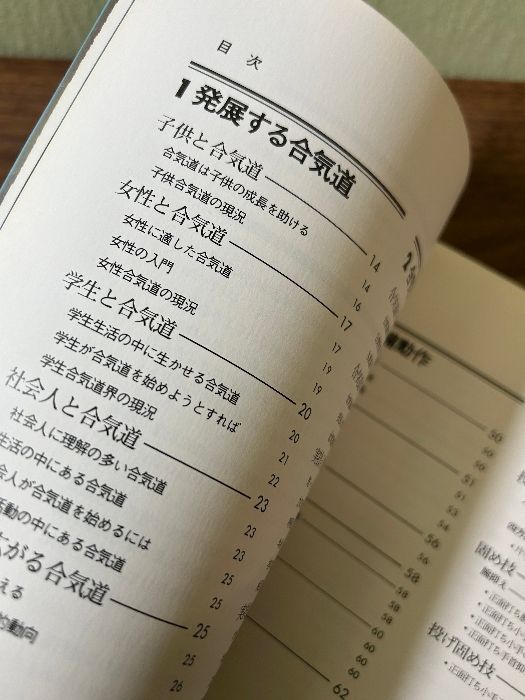 目次
1 発展する合気道
子供と合気道 14
合気道は子供の成長を助ける 14
子供合気道の現況 16
女性と合気道 17
女性に適した合気道 17
女性の入門 19
女性合気道の現況 19
学生と合気道 20
学生生活の中に生かせる合気道 20
学生が合気道を始めようとすれば 21
学生合気道界の現況 22
社会人と合気道 23
社会人に理解の多い合気道 23
生活の中にある合気道 23
会人が合気道を始めるには 25
活動の中にある合気道 25
がる合気道 25
える 25
的動向 26
2
動作
50
50
50
51
51
53
54
56
56
58
58
58
60
60
60
62
固め技
・正面打ち
・正面打ち小手
・正面打ち
投げ固め技
・正面打ち小手